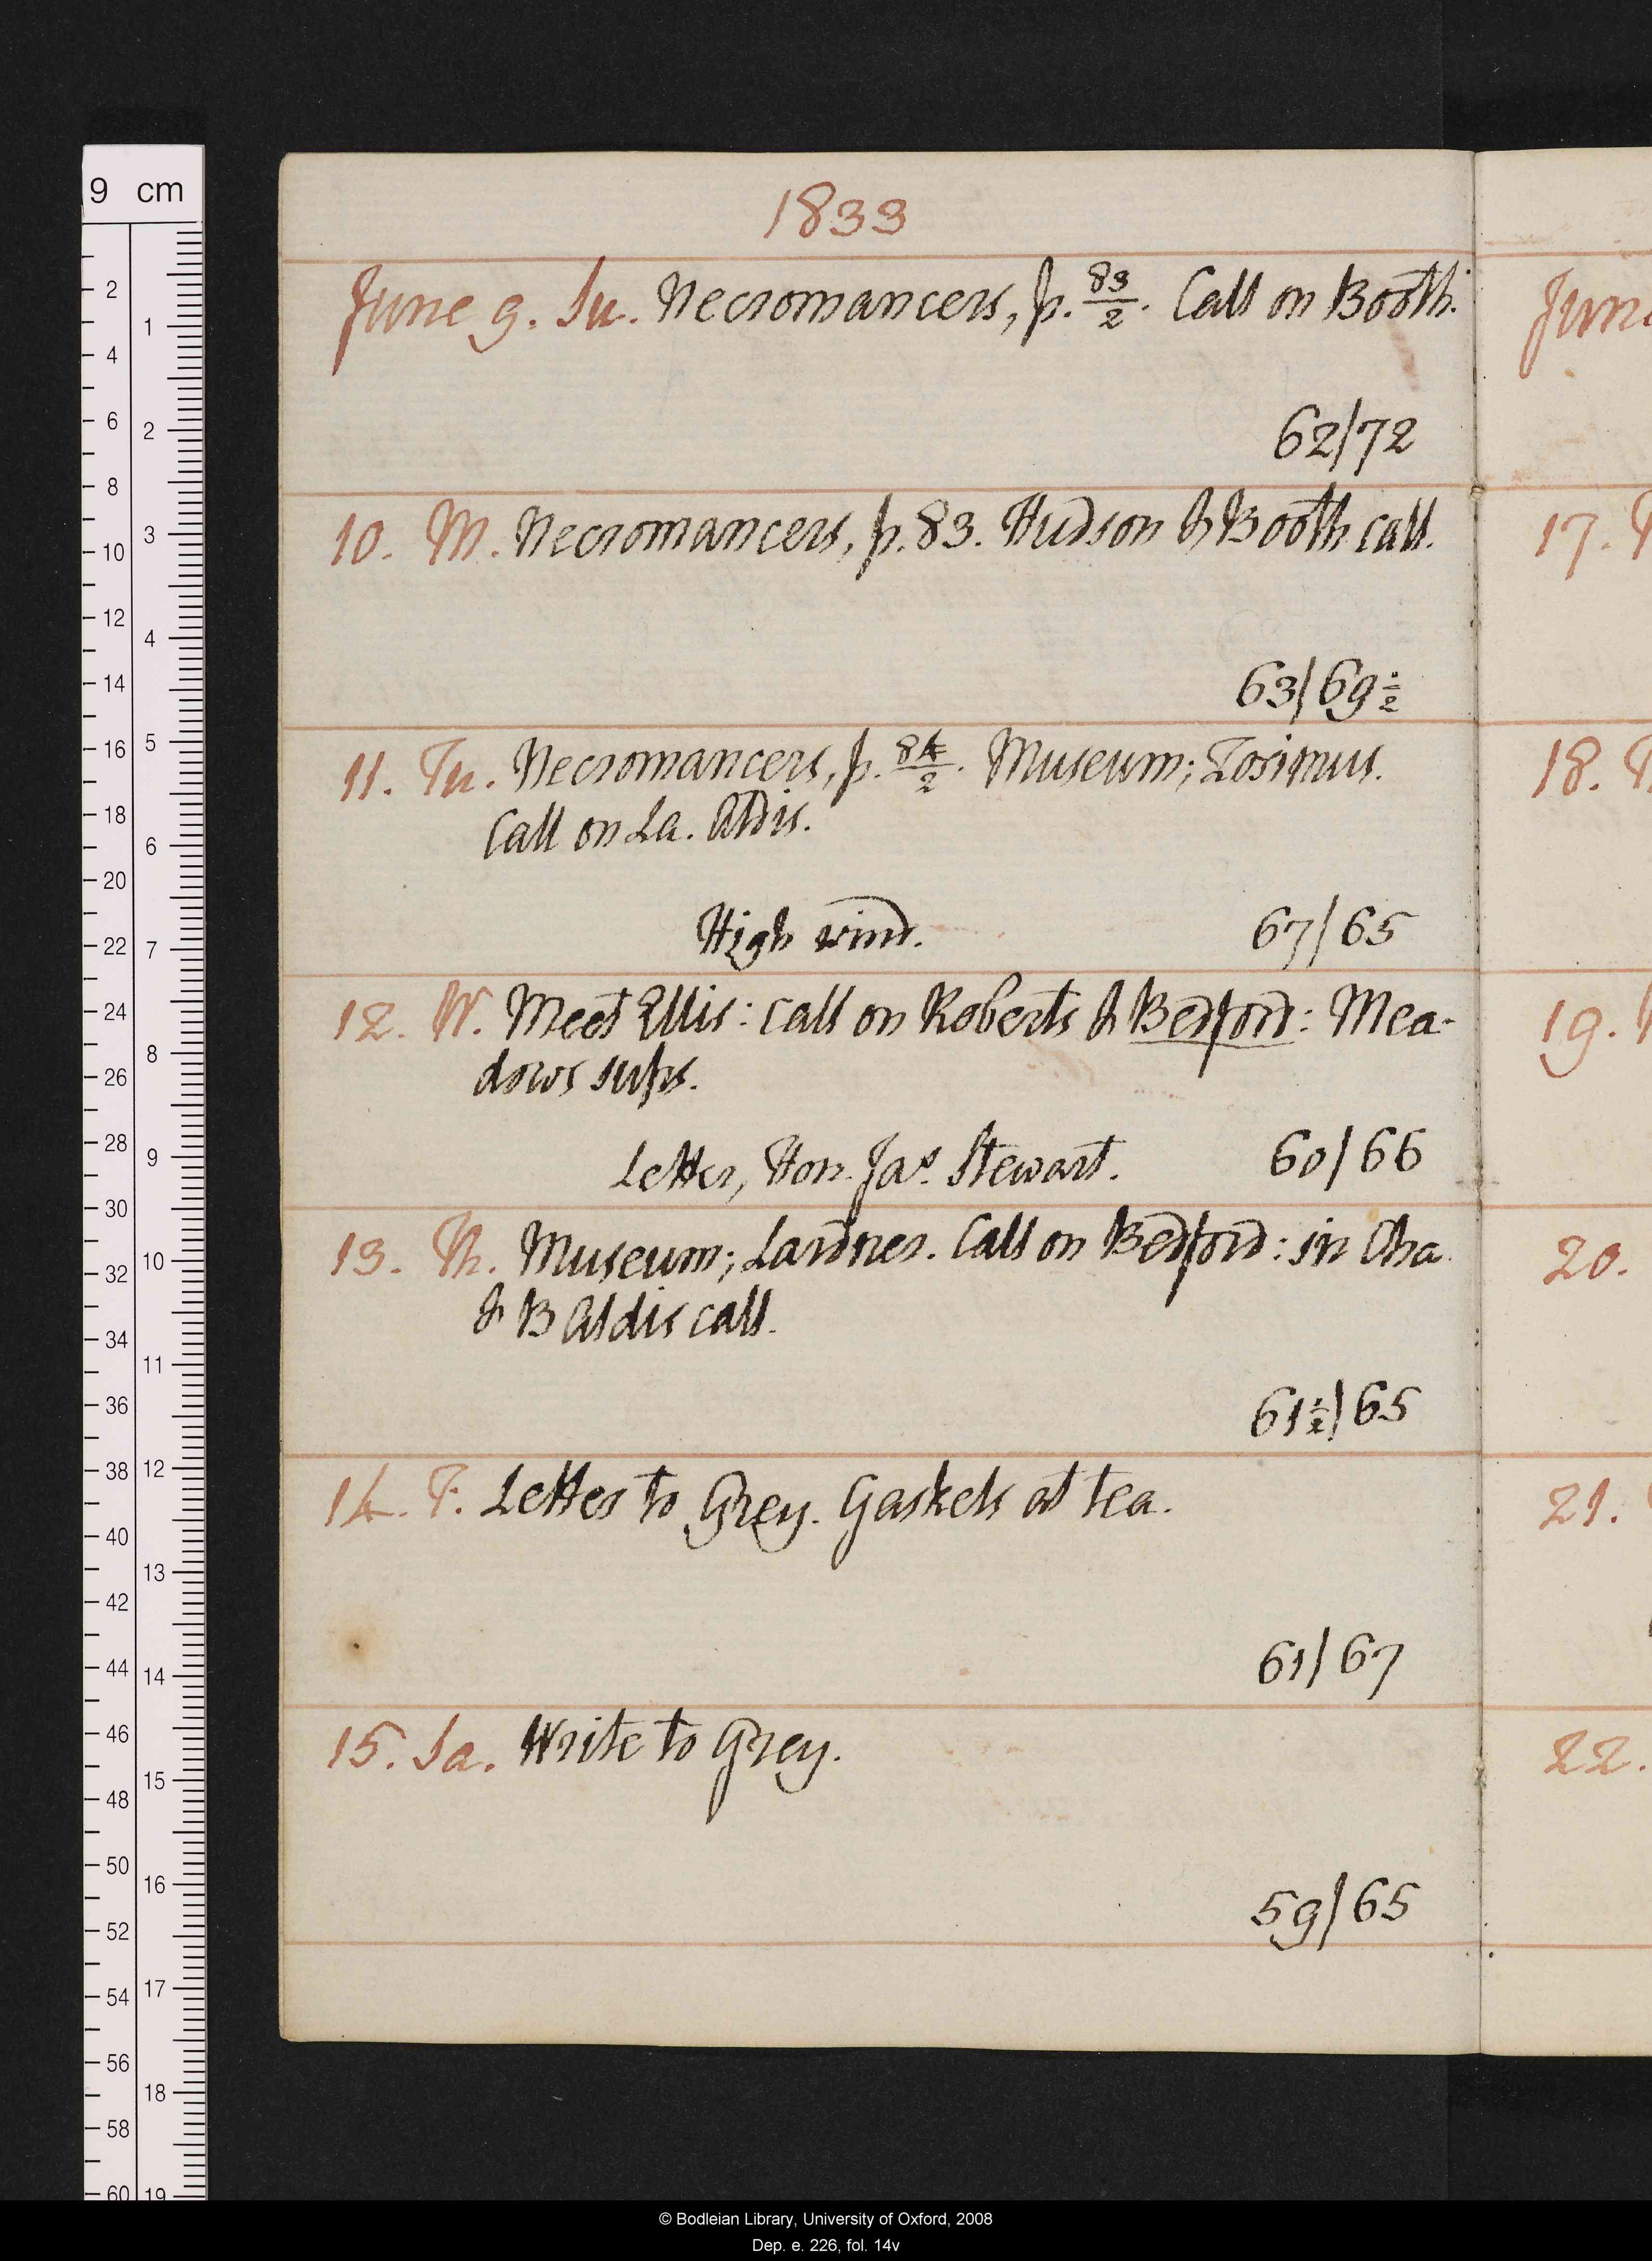 1833
June 9. Su. Necromancers, p. 83/2. Call on Booth.
62/72
10. M. Necromancers, p. 83. Hudson & Booth call.
63/69½
11. Tu. Necromancers, p. 84/2. Museum; Zosimus.
Call on La. Aldis.
High wind. 67/65
12. W. Meet Ellis: call on Roberts & Bedford: Mea-
dows sups.
Letter, Hon. Jas. Stewart. 60/66
13. Th. Museum; Lardner. Call on Bedford: in Cha
& B Aldis call.
61½/65
14. F. Letter to Grey. Gaskels at tea.
61/67
15. Sa. Write to Grey.
59/65
June
17.
18.
19.
20.
21.
22.
9 cm
© Bodleian Library, University of Oxford, 2008
Dep. e. 226, fol. 14v